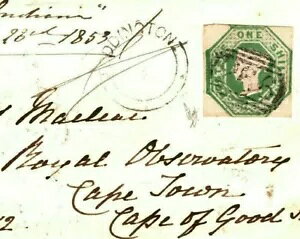 Indian"
23rd 1853
DDINGTON
ONE SHI
s Maclear
Royal Observatory
Cape Town
Cape of Good